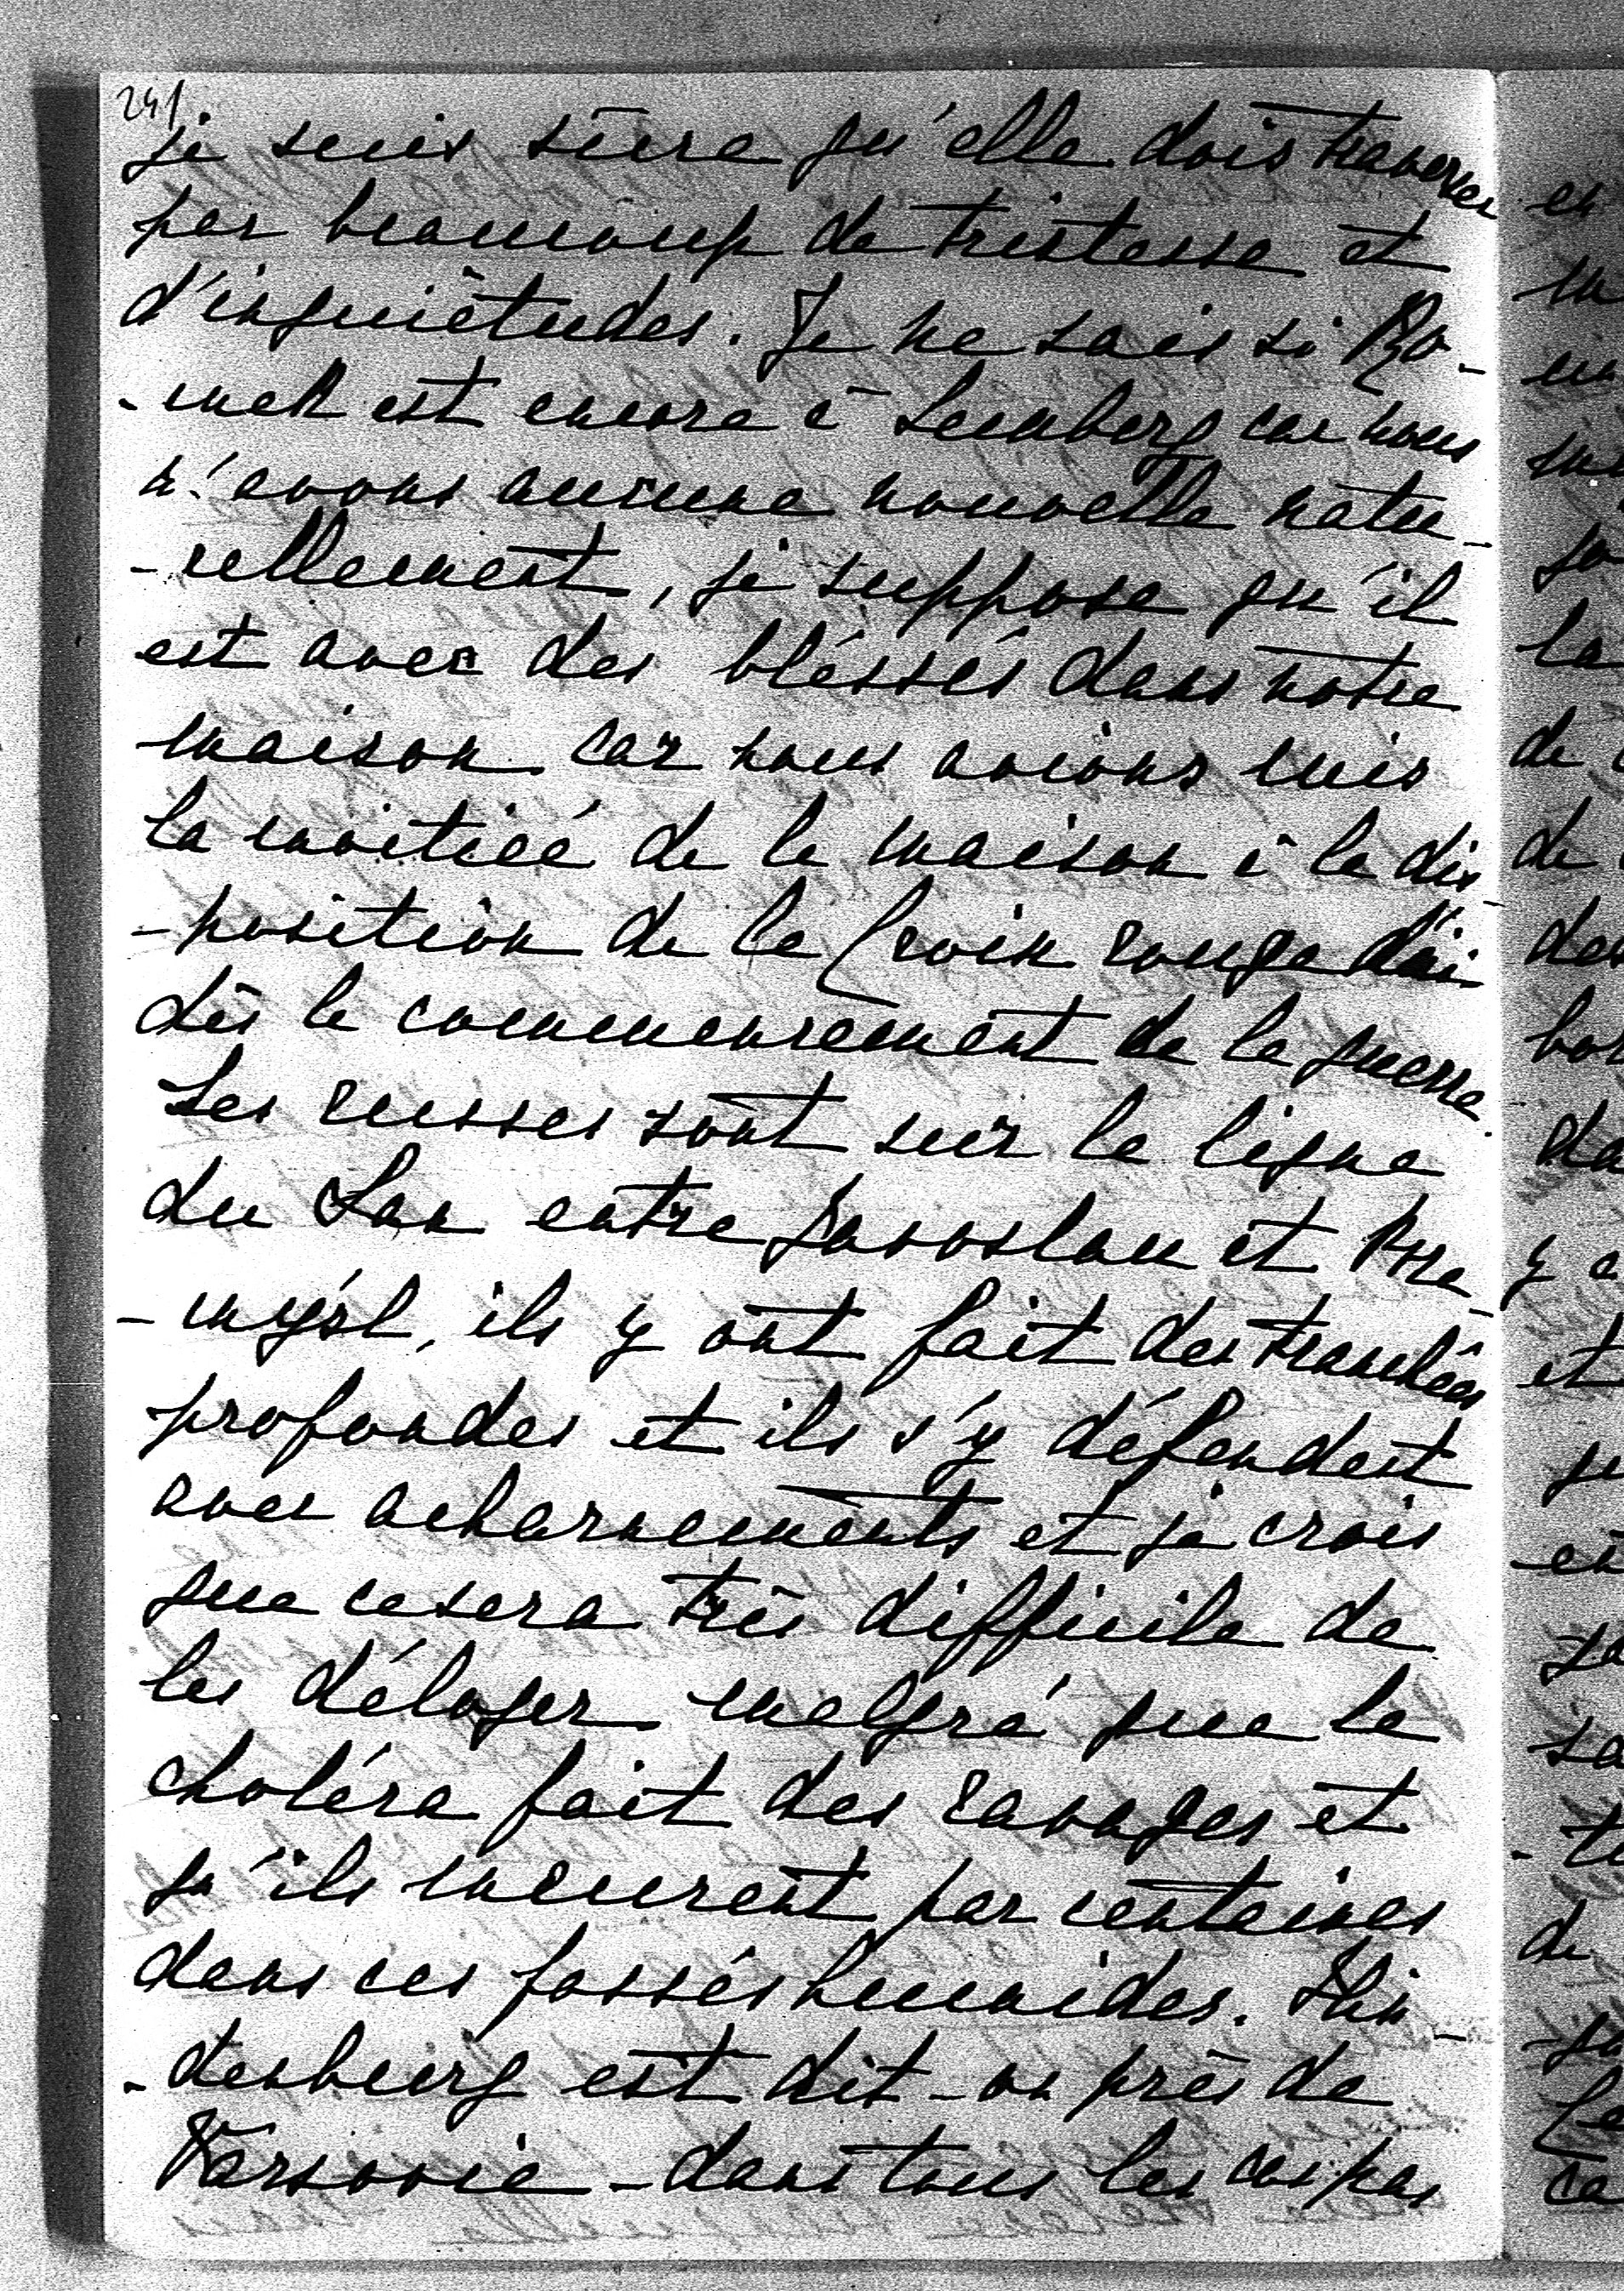 241
je suis sûre qu'elle dois traverser
par beaucoup de tristesse et
d'inquiètudes. Je ne sais si Ro-
-mek est encore à Lemberg car nous
n'avons aucune nouvelle natu-
-rellement, je suppose qu'il
est avec des bléssés dans notre
maison car nous avions mis
la moitiée de la maison à la dis-
-position de la Croix rouge
dès le commencement de la guerre.
Les russes sont sur la ligne
du San entre Jaroslau et Prze-
-mýsl, ils y ont fait des tranchées
profondes et ils s'y défendent
avec acharnements et je crois
que ce sera très difficile de
les déloger malgré que le
choléra fait des ravages et
qu'ils meurent par centaines
dans ces fossés humides. Hin-
-denburg est dit-on près de
Varsovie - dans tous les cas pas
en
la
de
de
des
y a
et
en
de